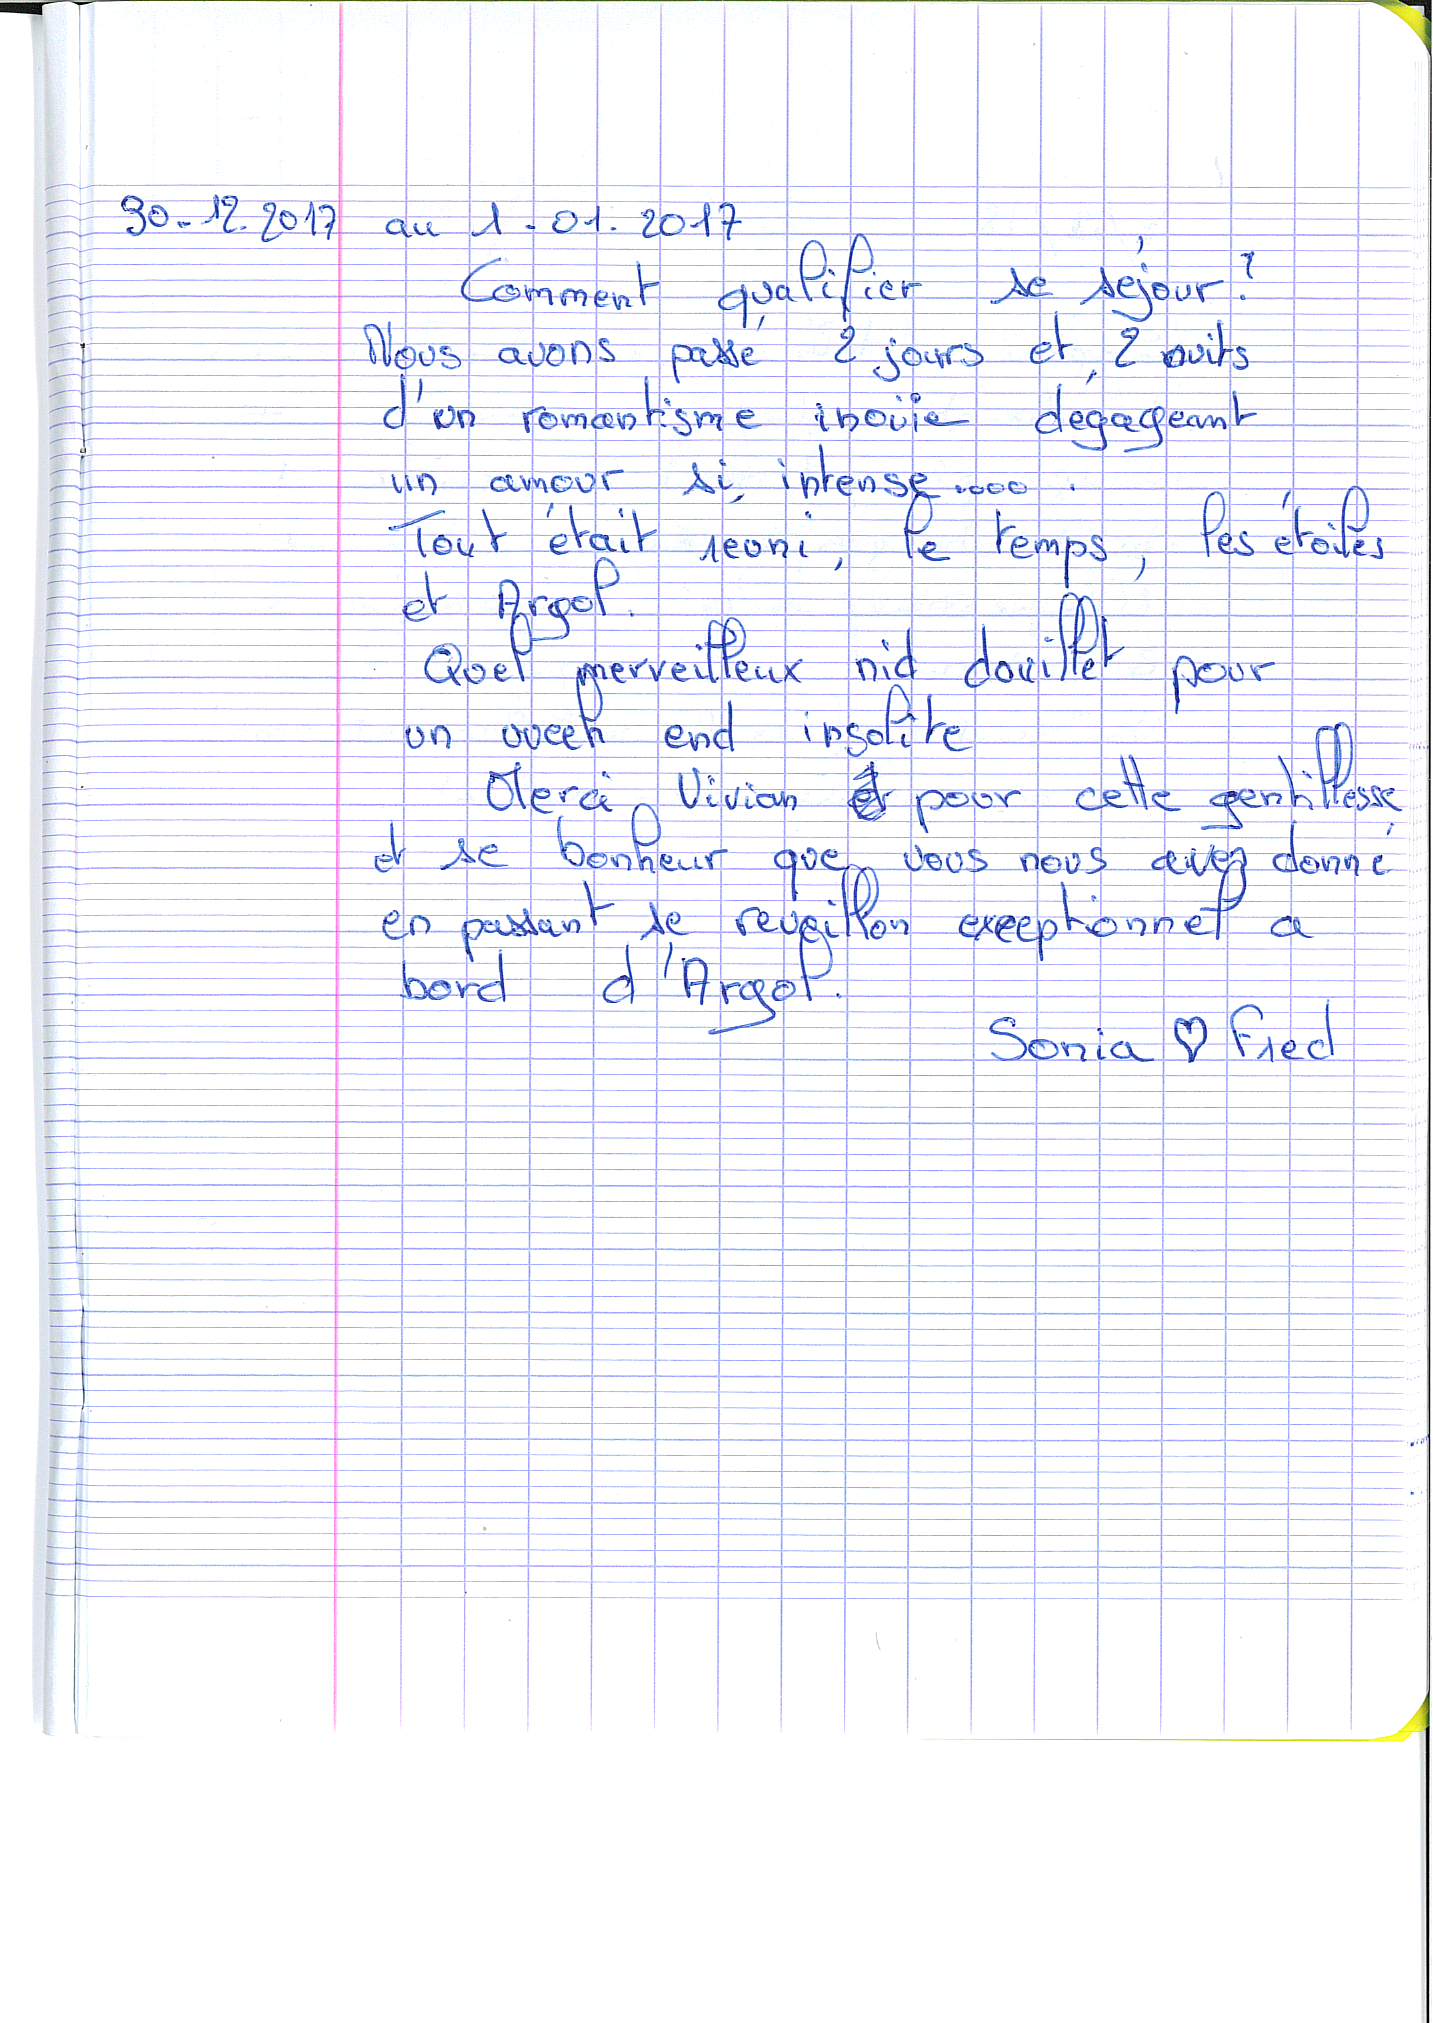 30-12.2017 au 1-01.2017
Comment qualifier se séjour?
Nous avons passé 2 jours et 2 nuits
d'un romantisme inouïe dégageant
un amour si intense.....
Tout était réuni, le temps, les étoiles
et Argol.
Quel merveilleux nid douillet pour
un week end insolite
Merci Vivian pour cette gentillesse
et se bonheur que vous nous avez donné
en passant se reveillon exceptionnel a
bord d'Argol.
Sonia ♡ Fred